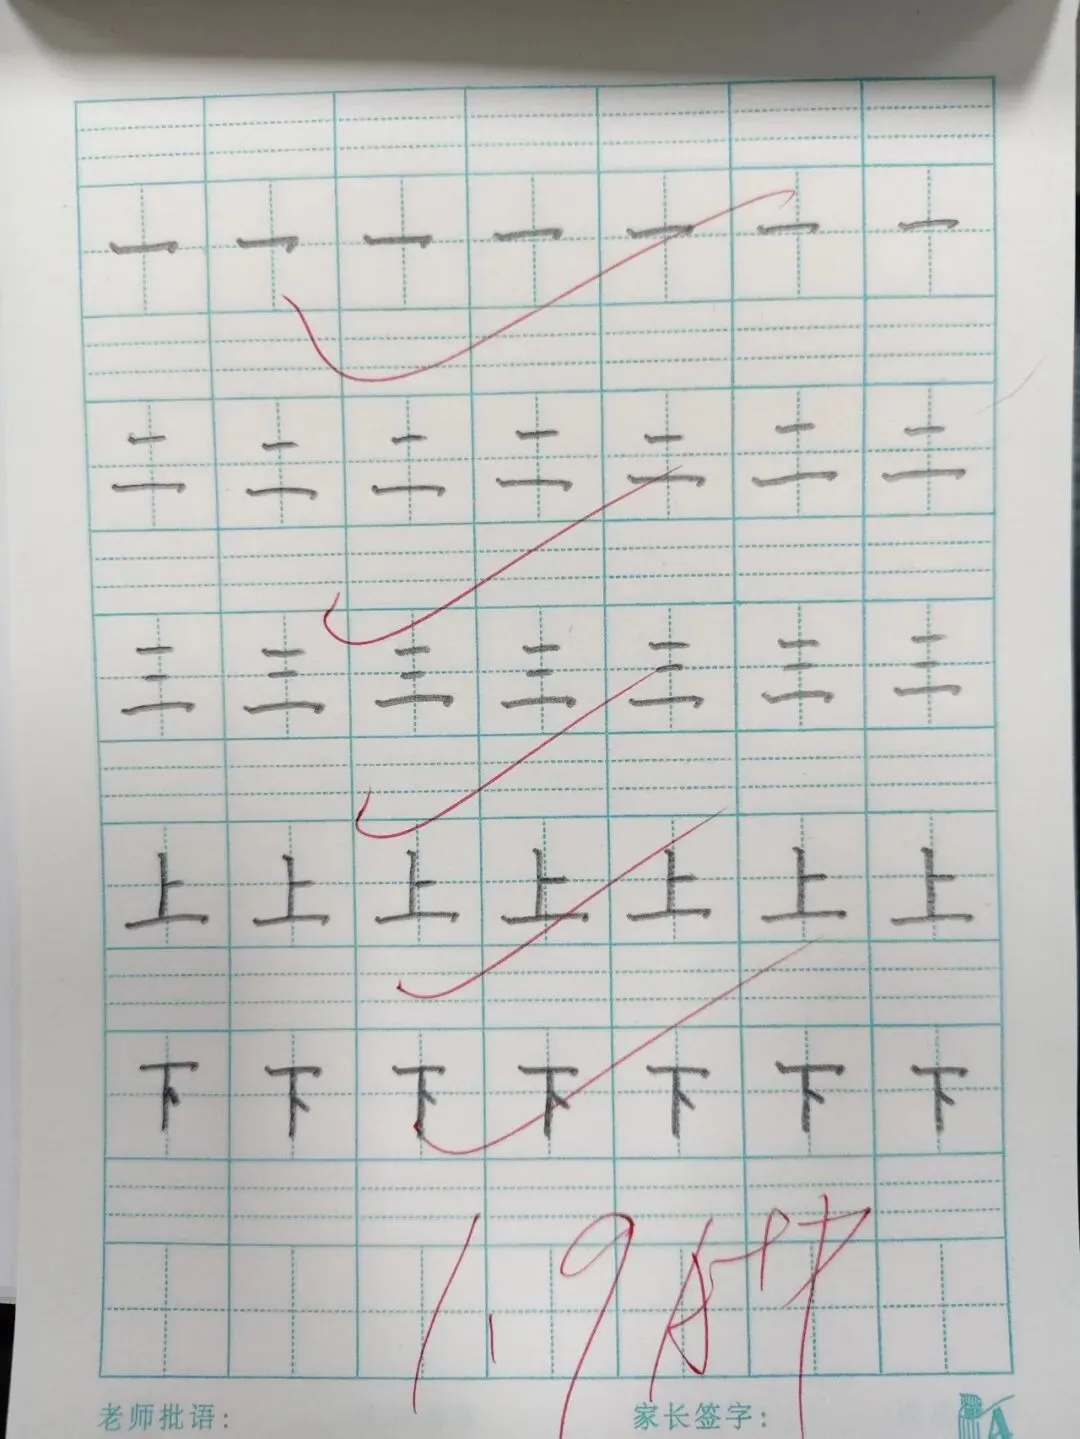 一 一 一 一 一 一 一
二 二 二 二 二 二 二
三 三 三 三 三 三 三
上 上 上 上 上 上 上
下 下 下 下 下 下 下
1.9
老师批语: 家长签字: